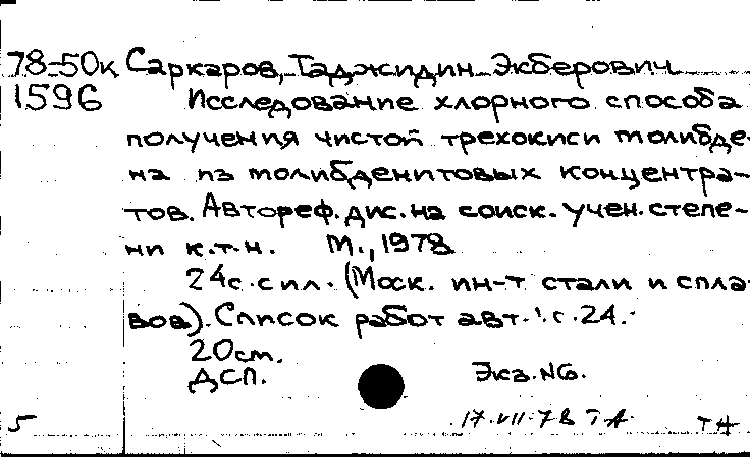 78-50к Саркаров, Таджидин Экберович
1596 Исследование хлорного способа
получения чистой трехокиси молибде-
на из молибденитовых концентра-
тов. Автореф. дис. на соиск. учен. степе-
ни к.т.н. М., 1978
24с. с ил. (Моск. ин-т стали и спла-
вов). Список работ авт.: с. 24.
20см.
ДСП. Экз. №6.
17.VII.78
5 ТН